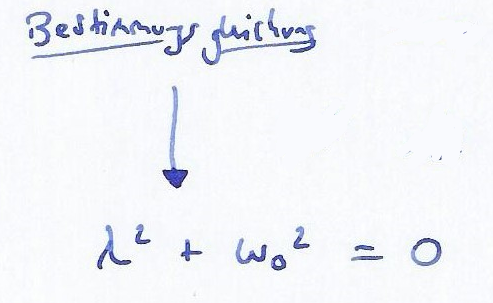 Bestimmungsgleichung
λ² + ω₀² = 0